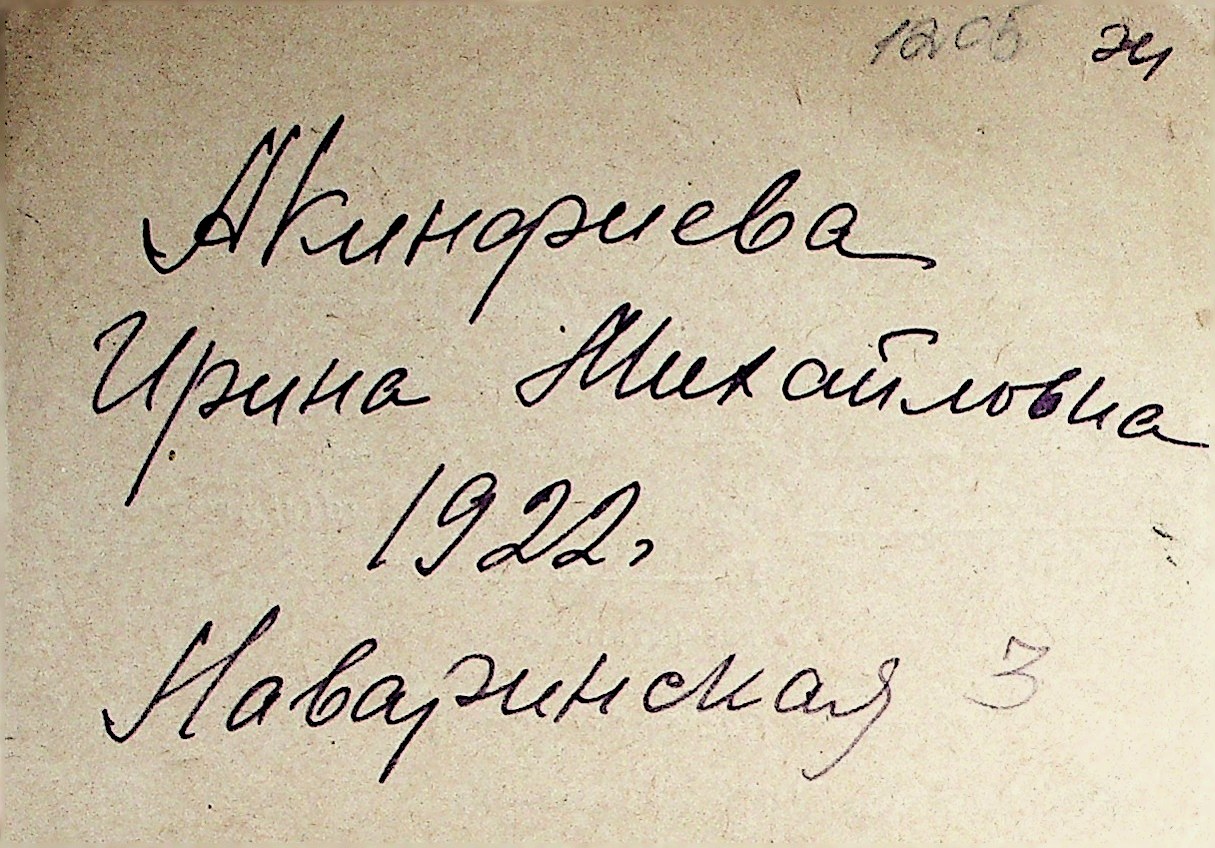 Акинфиева
Ирина Михайловна
1922г
Наваринская 3